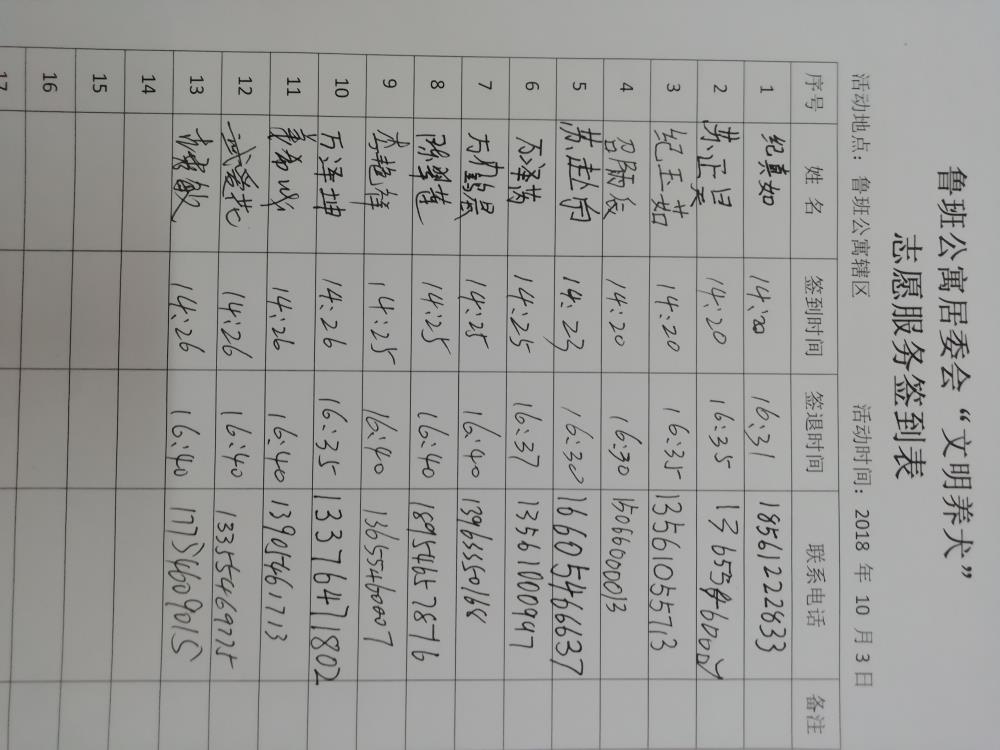 鲁班公寓居委会“文明养犬”
志愿服务签到表
活动地点：鲁班公寓辖区 活动时间：2018 年 10 月 3 日
序号 姓 名 签到时间 签退时间 联系电话 备注
1 纪真如 14:20 16:31 18561222833
2 苏正昊 14:20 16:35 13655460007
3 纪玉茹 14:20 16:35 13561055713
4 14:20 16:30 15066000013
5 苏赴向 14:23 16:30 16605466637
6 万泽茵 14:25 16:37 13561000947
7 14:25 16:40 13963350168
8 陈翠莲 14:25 16:40 18954657876
9 李艳维 14:25 16:40 13655460007
10 万泽坤 14:26 16:35 13376471802
11 14:26 16:40 13905461713
12 武爱花 14:26 16:40 13355469775
13 14:26 16:40 17754609015
14
15
16
17